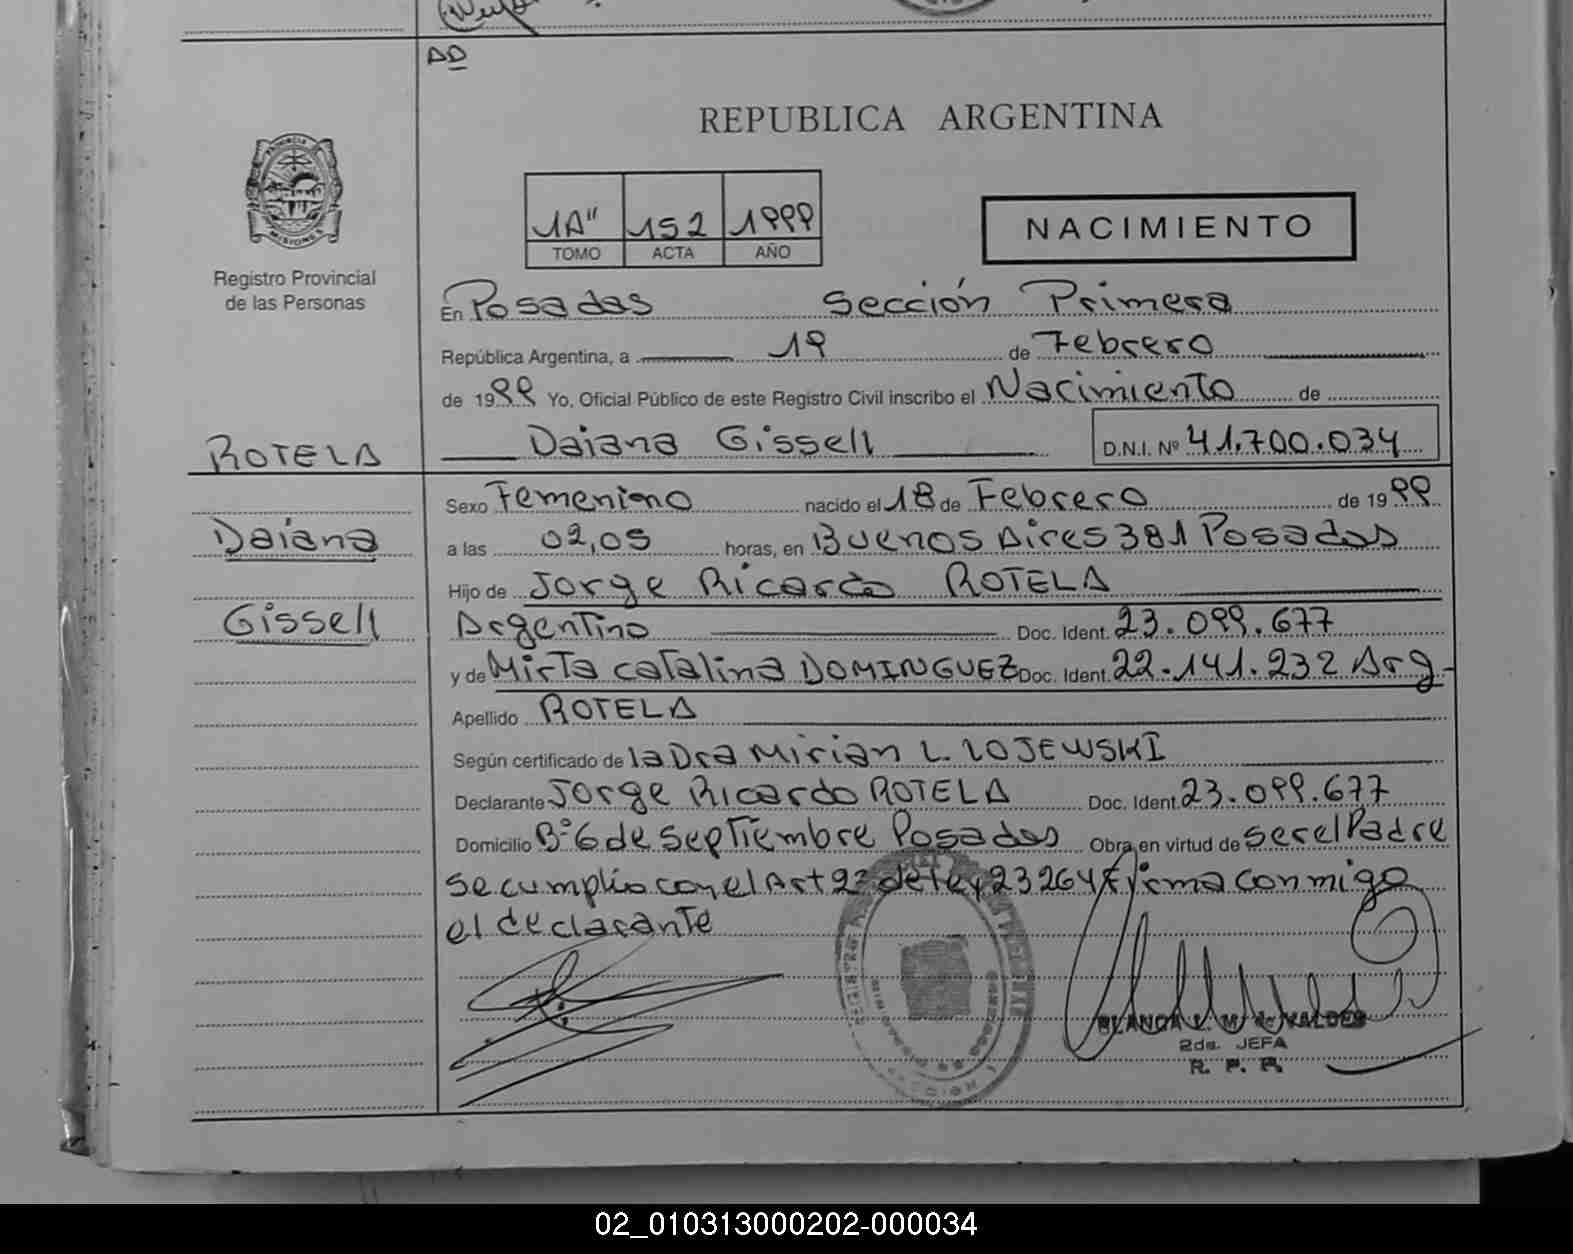 AD
REPUBLICA ARGENTINA
PROVINCIA
MISIONES
Registro Provincial
de las Personas
1A" 152 1999
TOMO ACTA AÑO
NACIMIENTO
En Posadas Sección Primera
República Argentina, a 19 de Febrero
de 1999 Yo, Oficial Público de este Registro Civil inscribo el Nacimiento de
ROTELA
Daiana Gissell D.N.I. Nº 41.700.034
Sexo Femenino nacido el 18 de Febrero de 1999
Daiana
a las 02,05 horas, en Buenos Aires 381 Posadas
Hijo de Jorge Ricardo ROTELA
Gissell
Argentino Doc. Ident. 23.099.677
y de Mirta Catalina DOMINGUEZ Doc. Ident. 22.141.232 Arg
Apellido ROTELA
Según certificado de la Dra Mirian L. LOJEWSKI
Declarante Jorge Ricardo ROTELA Doc. Ident. 23.099.677
Domicilio Bº 6 de Septiembre Posadas Obra en virtud de ser el Padre
Se cumplio con el Art 2º de Ley 23264 Firma conmigo
el declarante
BLANCA L. M. de VALDES
2da. JEFA
R. P. P.
02_010313000202-000034